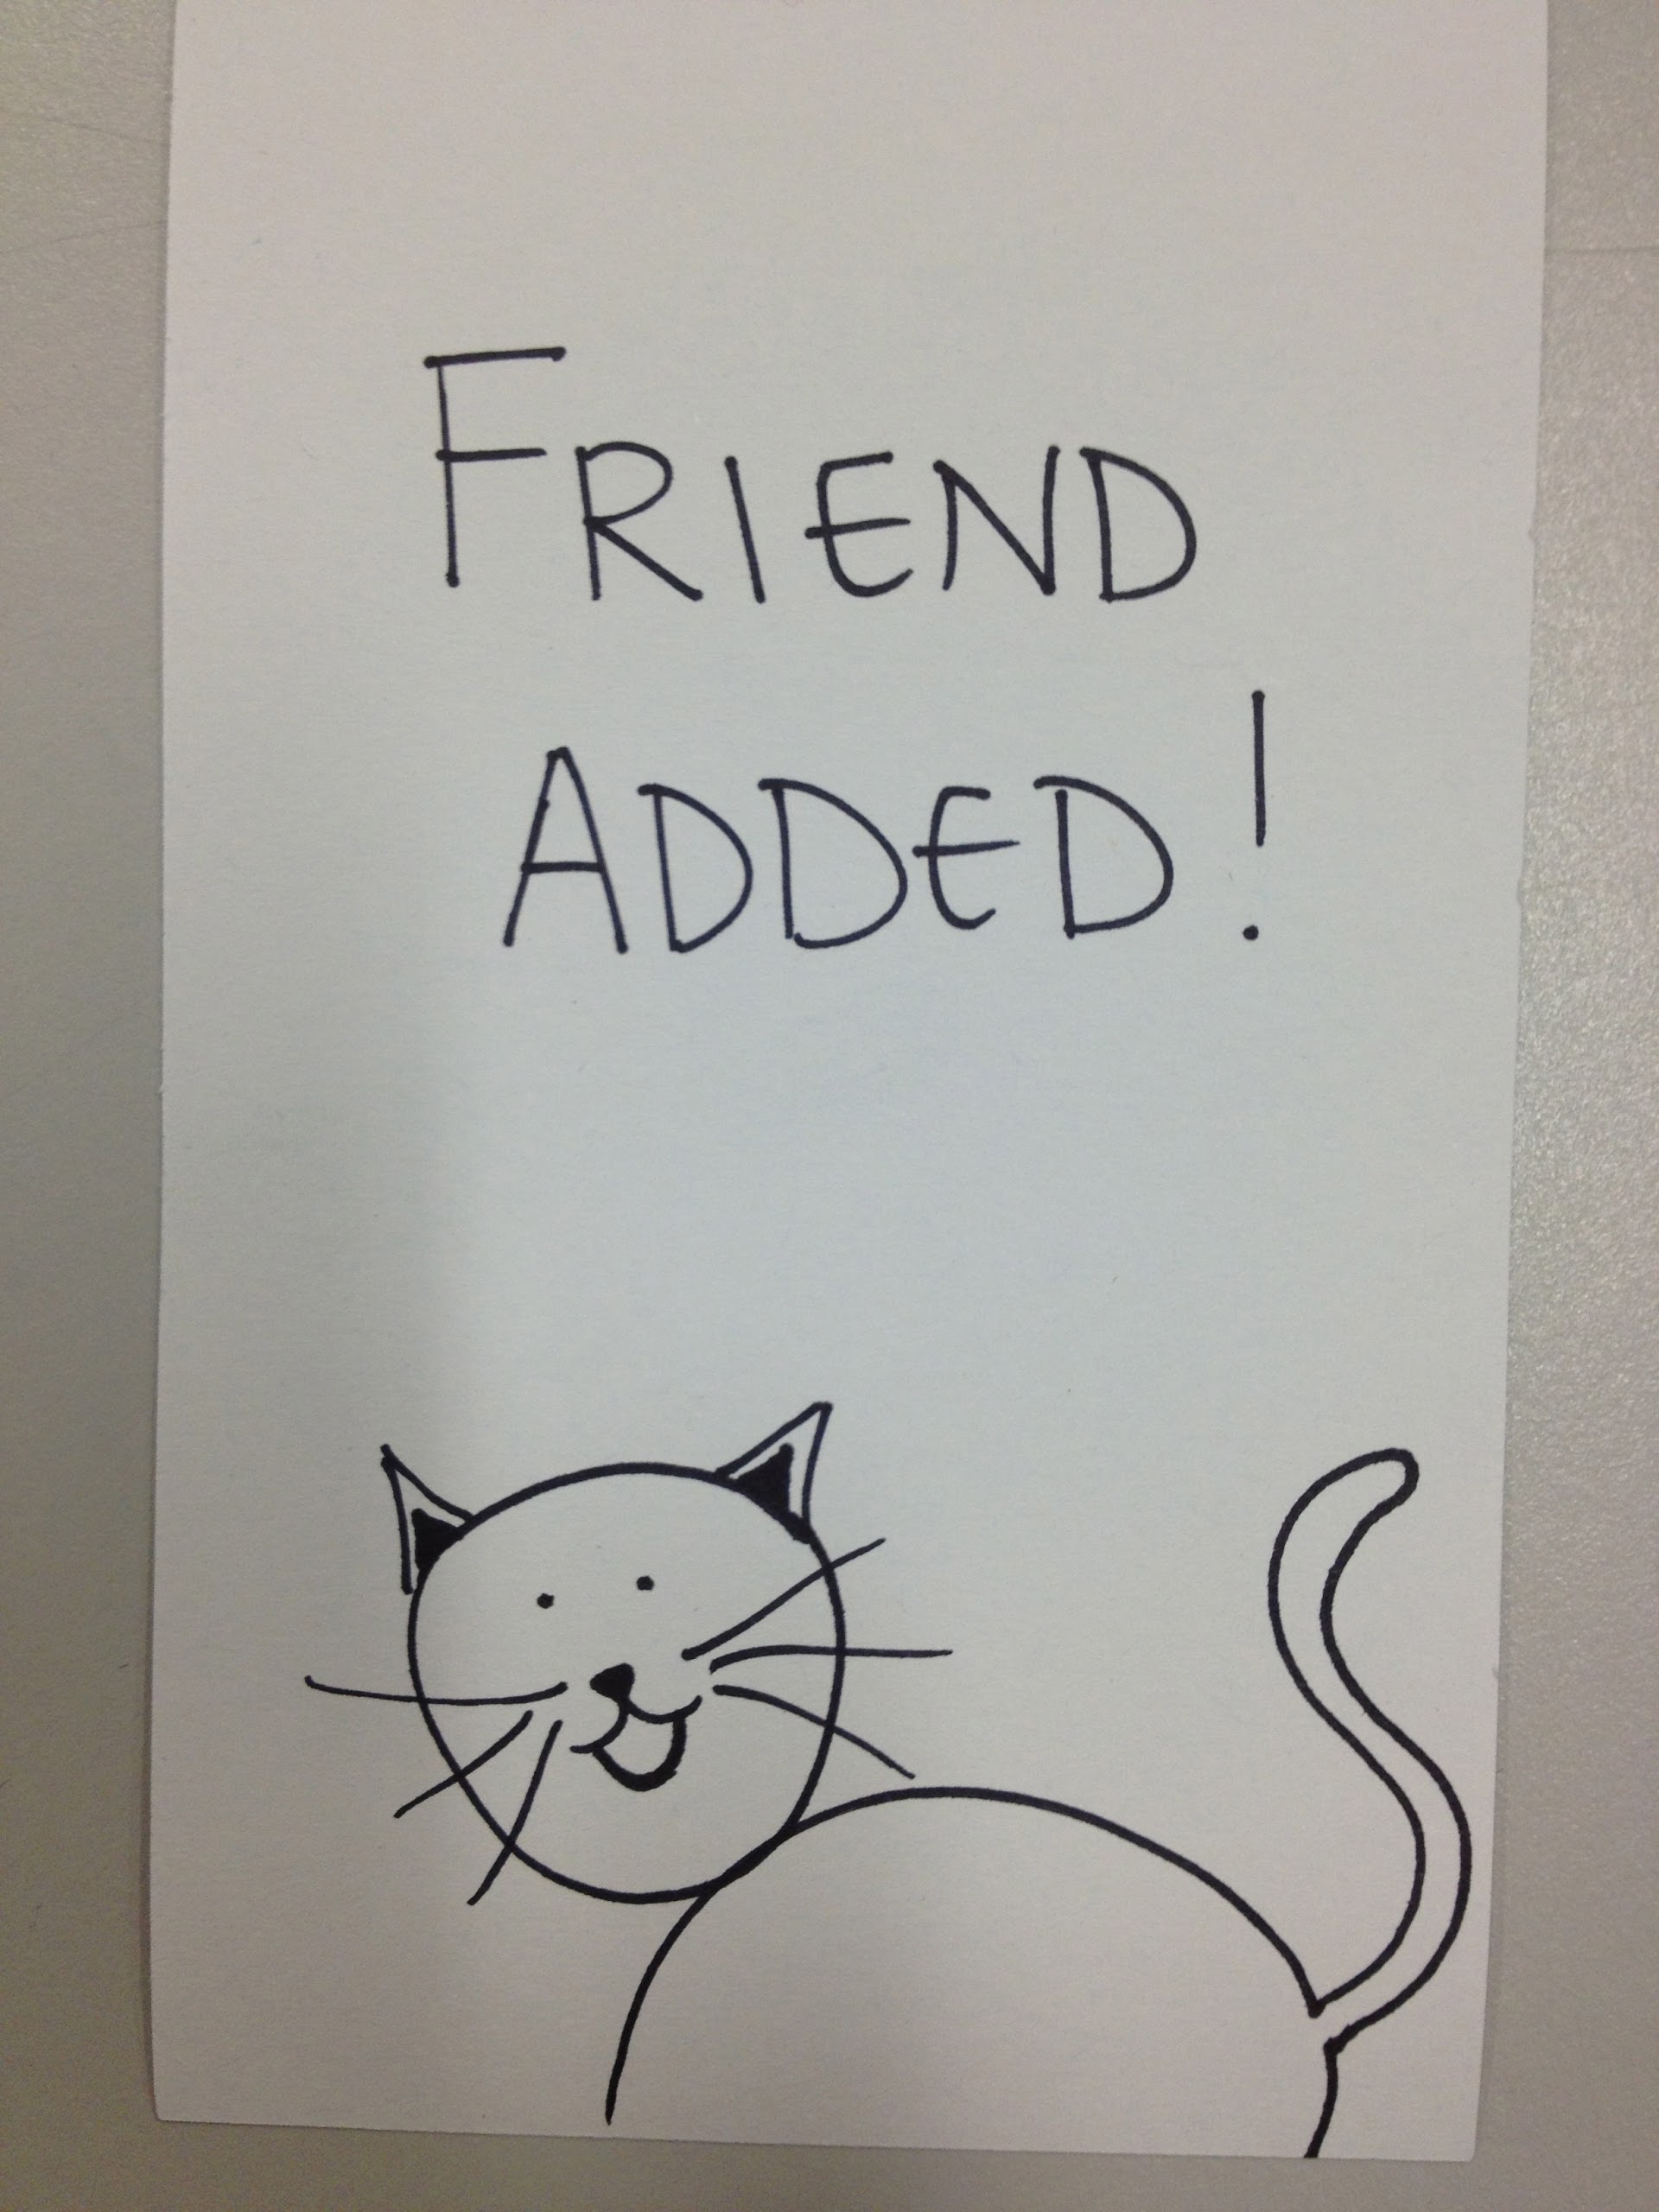 FRIEND
ADDED!